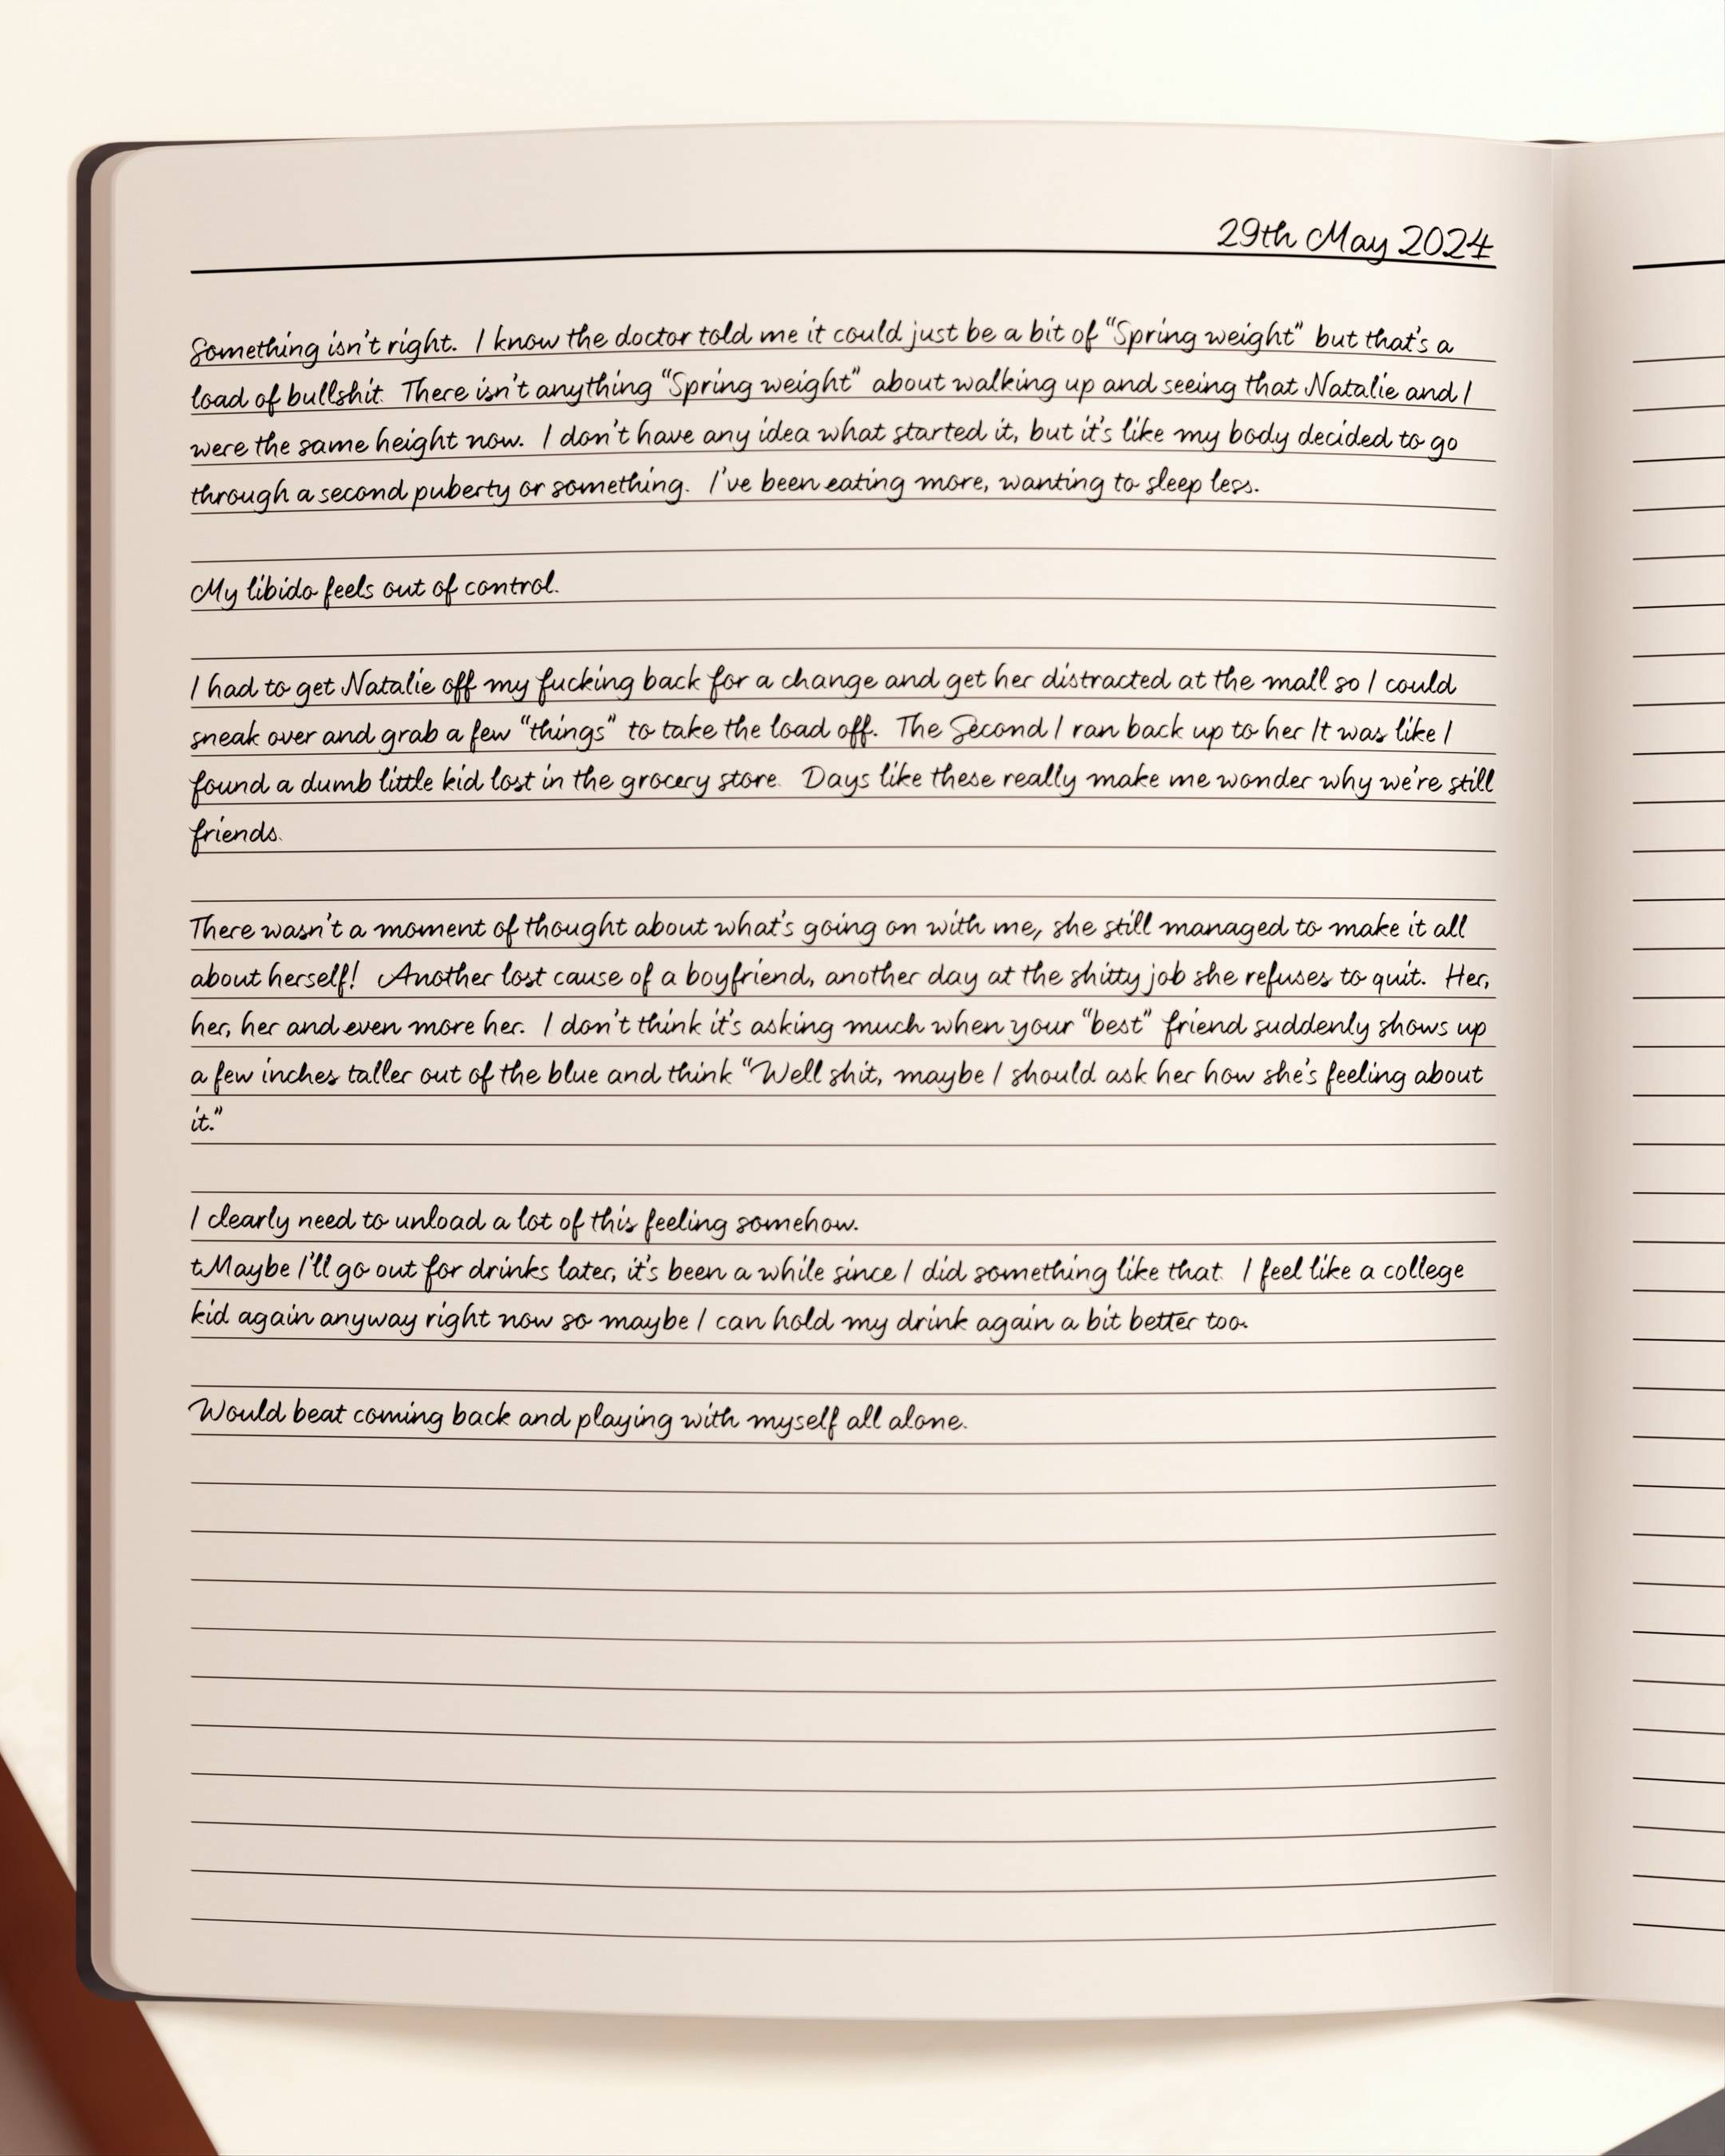 29th May 2024
Something isn't right. I know the doctor told me it could just be a bit of "Spring weight" but that's a
load of bullshit. There isn't anything "Spring weight" about walking up and seeing that Natalie and I
were the same height now. I don't have any idea what started it, but it's like my body decided to go
through a second puberty or something. I've been eating more, wanting to sleep less.
My libido feels out of control.
I had to get Natalie off my fucking back for a change and get her distracted at the mall so I could
sneak over and grab a few "things" to take the load off. The Second I ran back up to her It was like I
found a dumb little kid lost in the grocery store. Days like these really make me wonder why we're still
friends.
There wasn't a moment of thought about what's going on with me, she still managed to make it all
about herself! Another lost cause of a boyfriend, another day at the shitty job she refuses to quit. Her,
her, her and even more her. I don't think it's asking much when your "best" friend suddenly shows up
a few inches taller out of the blue and think "Well shit, maybe I should ask her how she's feeling about
it."
I clearly need to unload a lot of this feeling somehow.
tMaybe I'll go out for drinks later, it's been a while since I did something like that. I feel like a college
kid again anyway right now so maybe I can hold my drink again a bit better too.
Would beat coming back and playing with myself all alone.